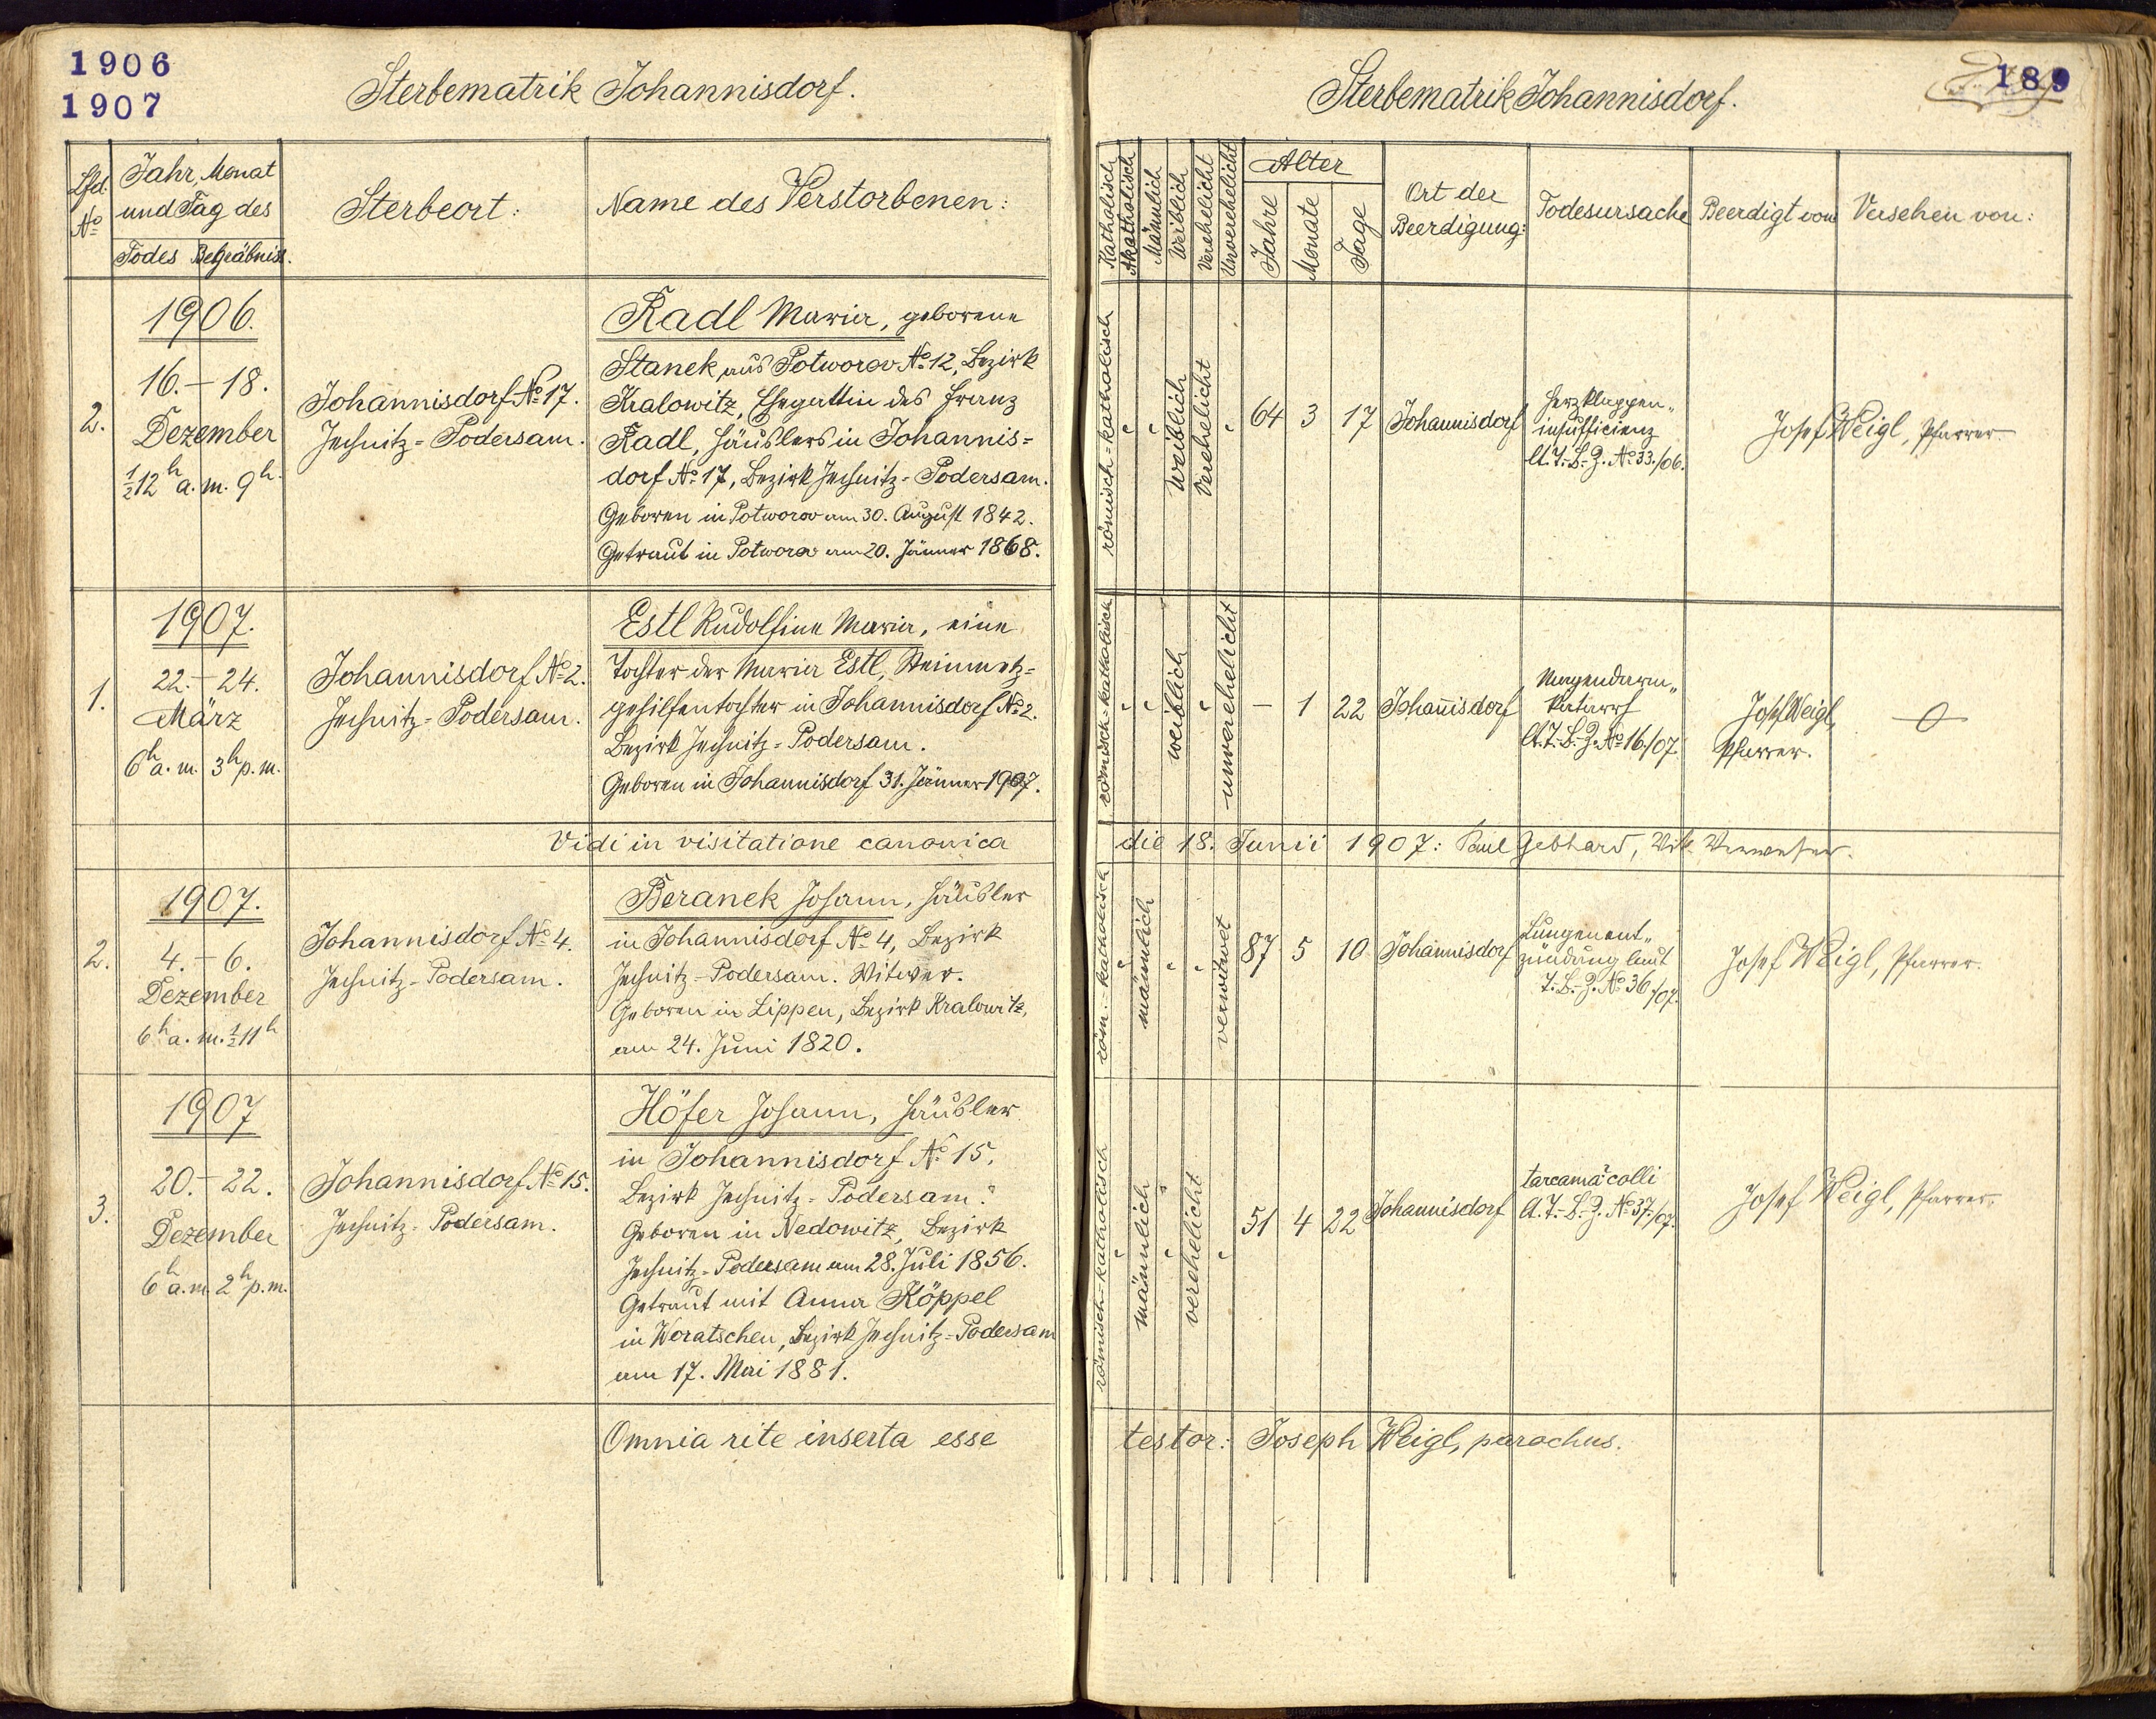 1906
1907
Sterbematrik Johannisdorf.
Lfd. No
Jahr, Monat
und Tag des
Todes Begräbniss.
Sterbeort:
Name des Verstorbenen:
2.
1906.
16. – 18.
Dezember
½12h a. m. 9h.
Johannisdorf No 17.
Jechnitz-Podersam.
Radl Maria, geborene
Stanek aus Potworov No 12, Bezirk
Kralowitz, Ehegattin des Franz
Radl, Häuslers in Johannis=
dorf No 17, Bezirk Jechnitz-Podersam.
Geboren in Potworov am 30. August 1842.
Getraut in Potworov am 20. Jänner 1868.
1.
1907.
22. – 24.
März
6h a. m. 3h p. m.
Johannisdorf No 2.
Jechnitz-Podersam.
Estl Rudolfine Maria, eine
Tochter der Maria Estl, Steinmetz=
gehilfentochter in Johannisdorf No 2.
Bezirk Jechnitz-Podersam.
Geboren in Johannisdorf 31. Jänner 1907.
Vidi in visitatione canonica
2.
1907.
4. – 6.
Dezember
6h a. m. ½11h
Johannisdorf No 4.
Jechnitz-Podersam.
Beranek Johann, Häusler
in Johannisdorf No 4, Bezirk
Jechnitz-Podersam. Witwer.
Geboren in Lippen, Bezirk Kralowitz,
am 24. Juni 1820.
3.
1907
20. – 22.
Dezember
6h a. m. 2h p. m.
Johannisdorf No 15.
Jechnitz-Podersam.
Höfer Johann, Häusler
in Johannisdorf No 15,
Bezirk Jechnitz-Podersam.
Geboren in Nedowitz, Bezirk
Jechnitz-Podersam am 28. Juli 1856.
Getraut mit Anna Köppel
in Woratschen, Bezirk Jechnitz-Podersam
am 17. Mai 1881.
Omnia rite inserta esse
Sterbematrik Johannisdorf.
189
Katholisch
Akatholisch
Männlich
Weiblich
Verehelicht
Unverehelicht
Alter
Jahre
Monate
Tage
Ort der
Beerdigung:
Todesursache
Beerdigt vom
Versehen von:
römisch-katholisch
weiblich
Verehelicht
64 3 17
Johannisdorf
Herzklappen„
insufficienz
A. T.-B.-Z. No 33./06.
Josef Weigl, Pfarrer.
römisch-katholisch
weiblich
unverehelicht
– 1 22
Johannisdorf
Magendarm„
katarrh
A. T.-B.-Z. No 16./07.
Josef Weigl,
Pfarrer.
die 18. Junii 1907: Paul Gebhard, Vik. Verweser.
röm.-katholisch
männlich
verwitwet
87 5 10
Johannisdorf
Lungenent„
zündung laut
T.-B.-Z. No 36./07.
Josef Weigl, Pfarrer.
römisch-katholisch
männlich
verehelicht
51 4 22
Johannisdorf
colli
A. T.-B.-Z. No 37./07.
Josef Weigl, Pfarrer.
testor: Joseph Weigl, parochus.